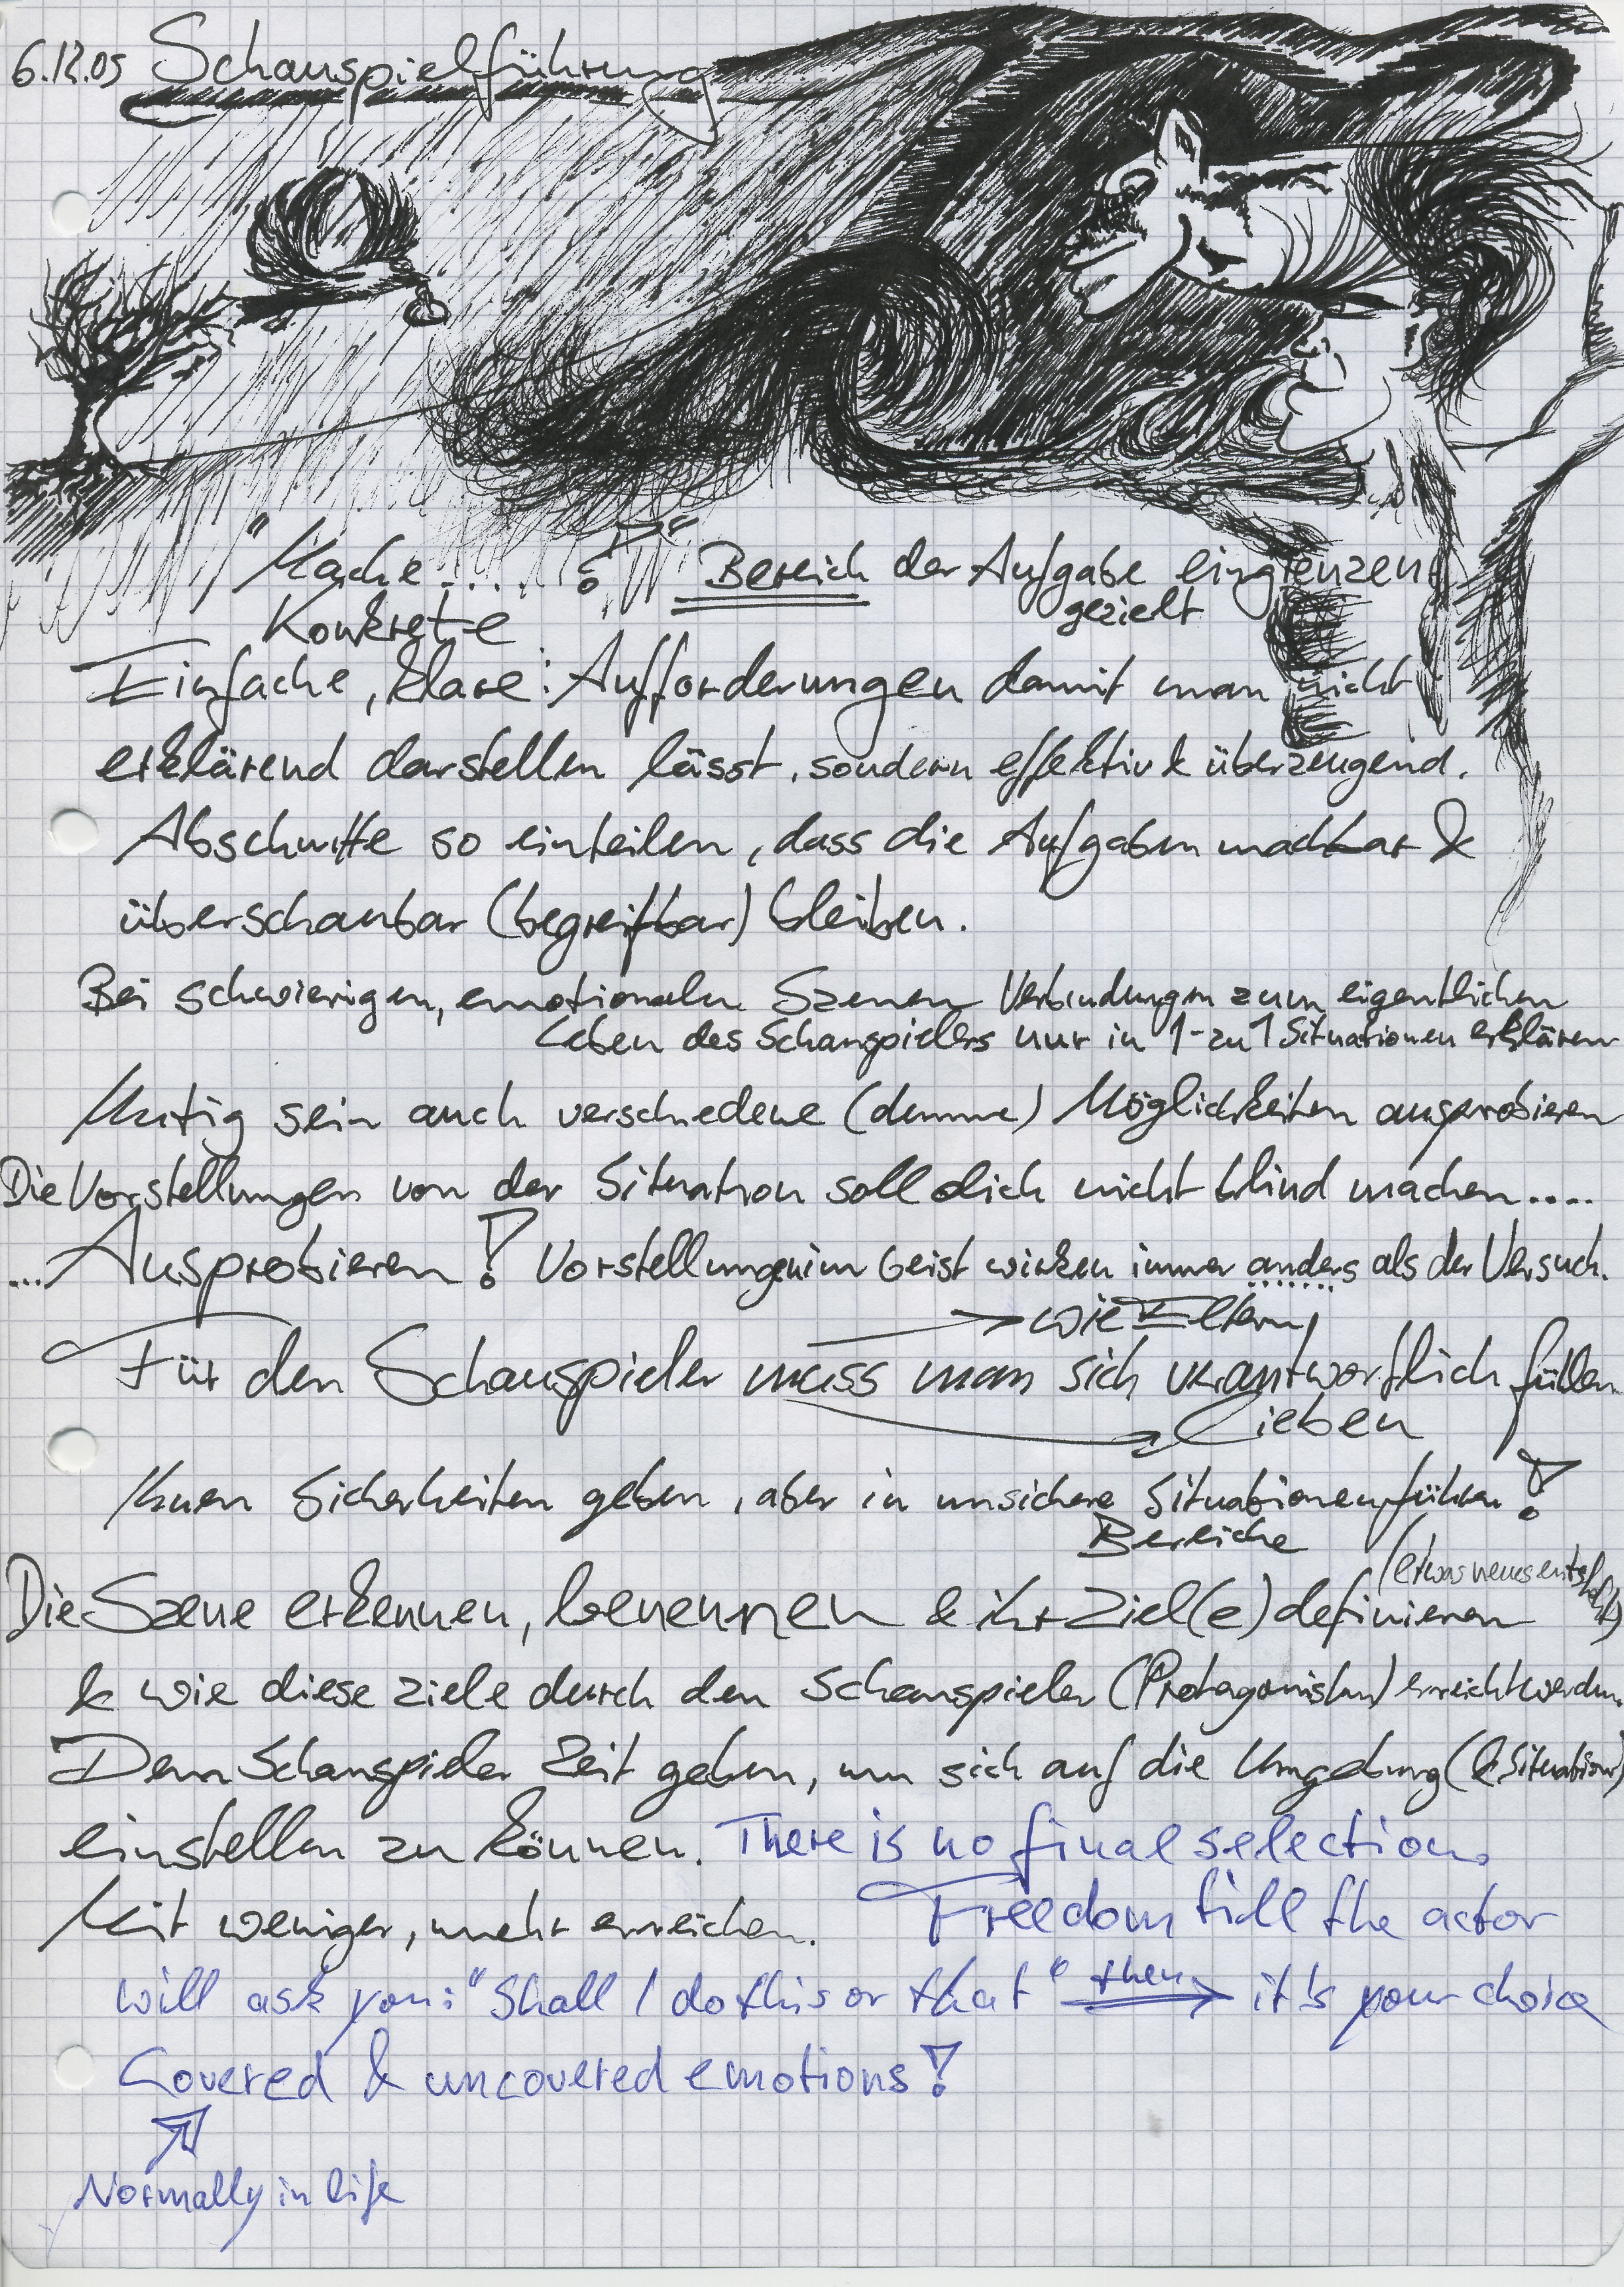 6.12.05 Schauspielführung
"Mache..... !" Bereich der Aufgabe eingrenzen
gezielt
Konkrete
Einfache, klare: Aufforderungen damit man nicht
erklärend darstellen lässt, sondern effektiv & überzeugend.
Abschnitte so einteilen, dass die Aufgaben machbar &
überschaubar (begreifbar) bleiben.
Bei schwierigen, emotionalen Szenen Verbindungen zum eigentlichen
Leben des Schauspielers nur in 1-zu 1 Situationen erklären
Mutig sein auch verschiedene (dumme) Möglichkeiten ausprobieren
Die Vorstellungen von der Situation soll dich nicht blind machen....
...Ausprobieren! Vorstellungen im Geist wirken immer anders als der Versuch.
→ wie Eltern
Für den Schauspieler muss man sich verantwortlich fühlen
→ Lieben
Ihnen Sicherheiten geben, aber in unsichere Situationen führen!
Bereiche
(etwas neues entsteht)
Die Szene erkennen, benennen & ihr Ziel(e) definieren
& wie diese Ziele durch den Schauspieler (Protagonisten) erreicht werden.
Dem Schauspieler Zeit geben, um sich auf die Umgebung (& Situation)
einstellen zu können. There is no final selection.
Mit weniger, mehr erreichen. Freedom till the actor
will ask you: "Shall I do this or that" then → it's your choice
Covered & uncovered emotions!
Normally in life